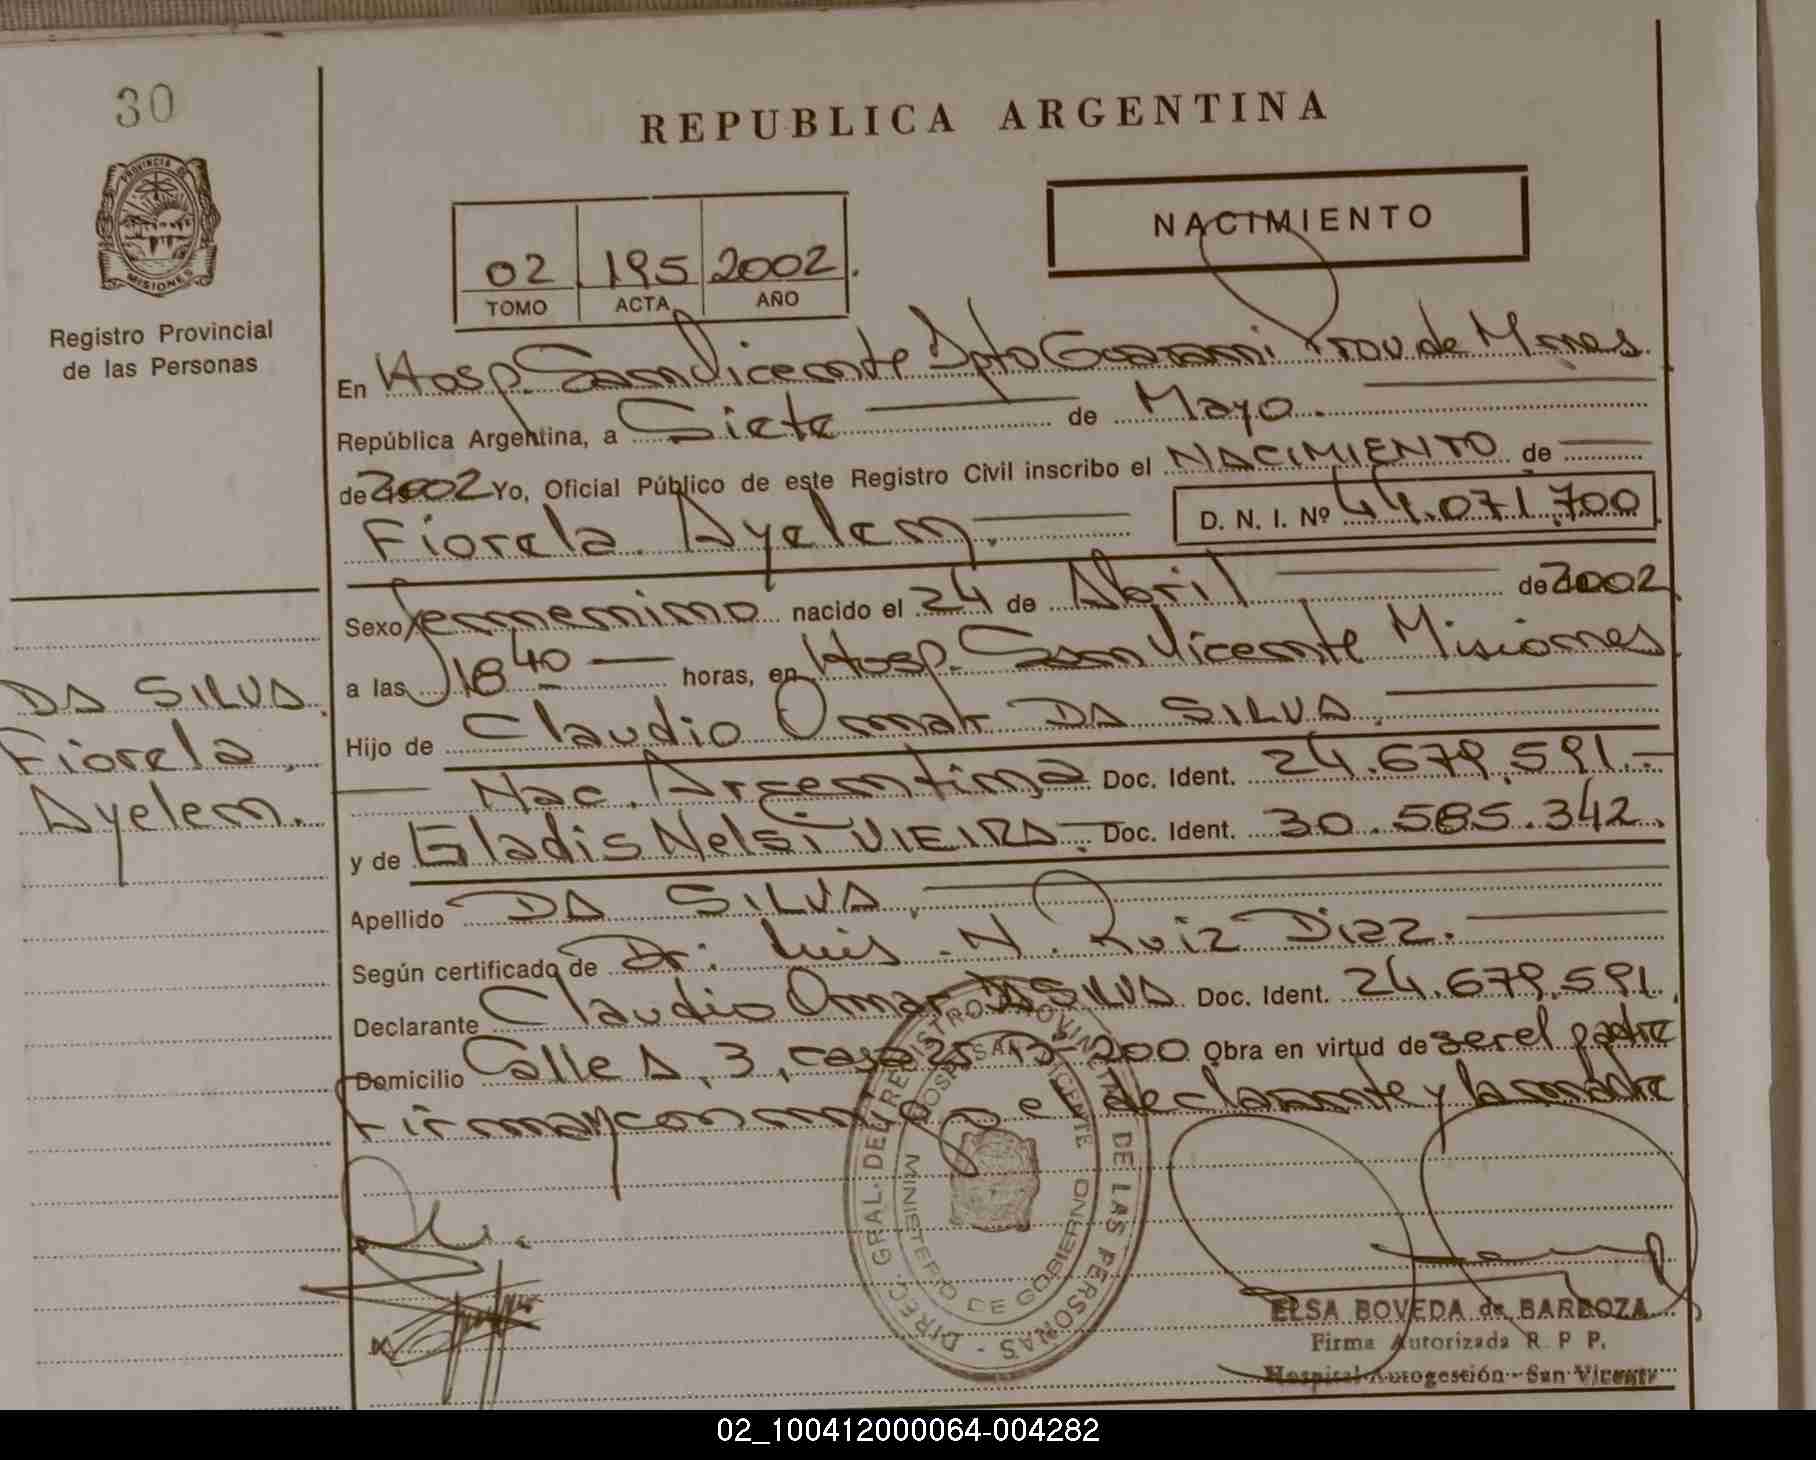 30
PROVINCIA DE
MISIONES
Registro Provincial
de las Personas
REPUBLICA ARGENTINA
NACIMIENTO
02 195 2002.
TOMO ACTA AÑO
En Hosp. San Vicente Dpto Guarani Prov de Mnes.
República Argentina, a Siete de Mayo.
de 2002 Yo, Oficial Público de este Registro Civil inscribo el NACIMIENTO de
Fiorela Ayelen. D. N. I. Nº 44.071.700
Sexo femenino nacido el 24 de Abril de 2002
a las 18 40 horas, en Hosp. San Vicente Misiones
Hijo de Claudio Omar DA SILVA.
Nac. Argentina Doc. Ident. 24.679.591.-
y de Gladis Nelsi VIEIRA.- Doc. Ident. 30.585.342.
Apellido DA SILVA.
Según certificado de Dr: Luis N. Ruiz Diaz.
Declarante Claudio Omar DA SILVA Doc. Ident. 24.679.591.
Domicilio Calle A, 3, casa 25 200 Obra en virtud de ser el padre
Firman conmigo el declarante y la madre
DA SILVA.
Fiorela,
Ayelen.
DIREC. GRAL. DEL REGISTRO PROVINCIAL DE LAS PERSONAS -
HOSP. SAN VICENTE
MINISTERIO DE GOBIERNO
ELSA BOVEDA de BARBOZA
Firma Autorizada R. P. P.
Hospital Autogestión - San Vicente
02_100412000064-004282